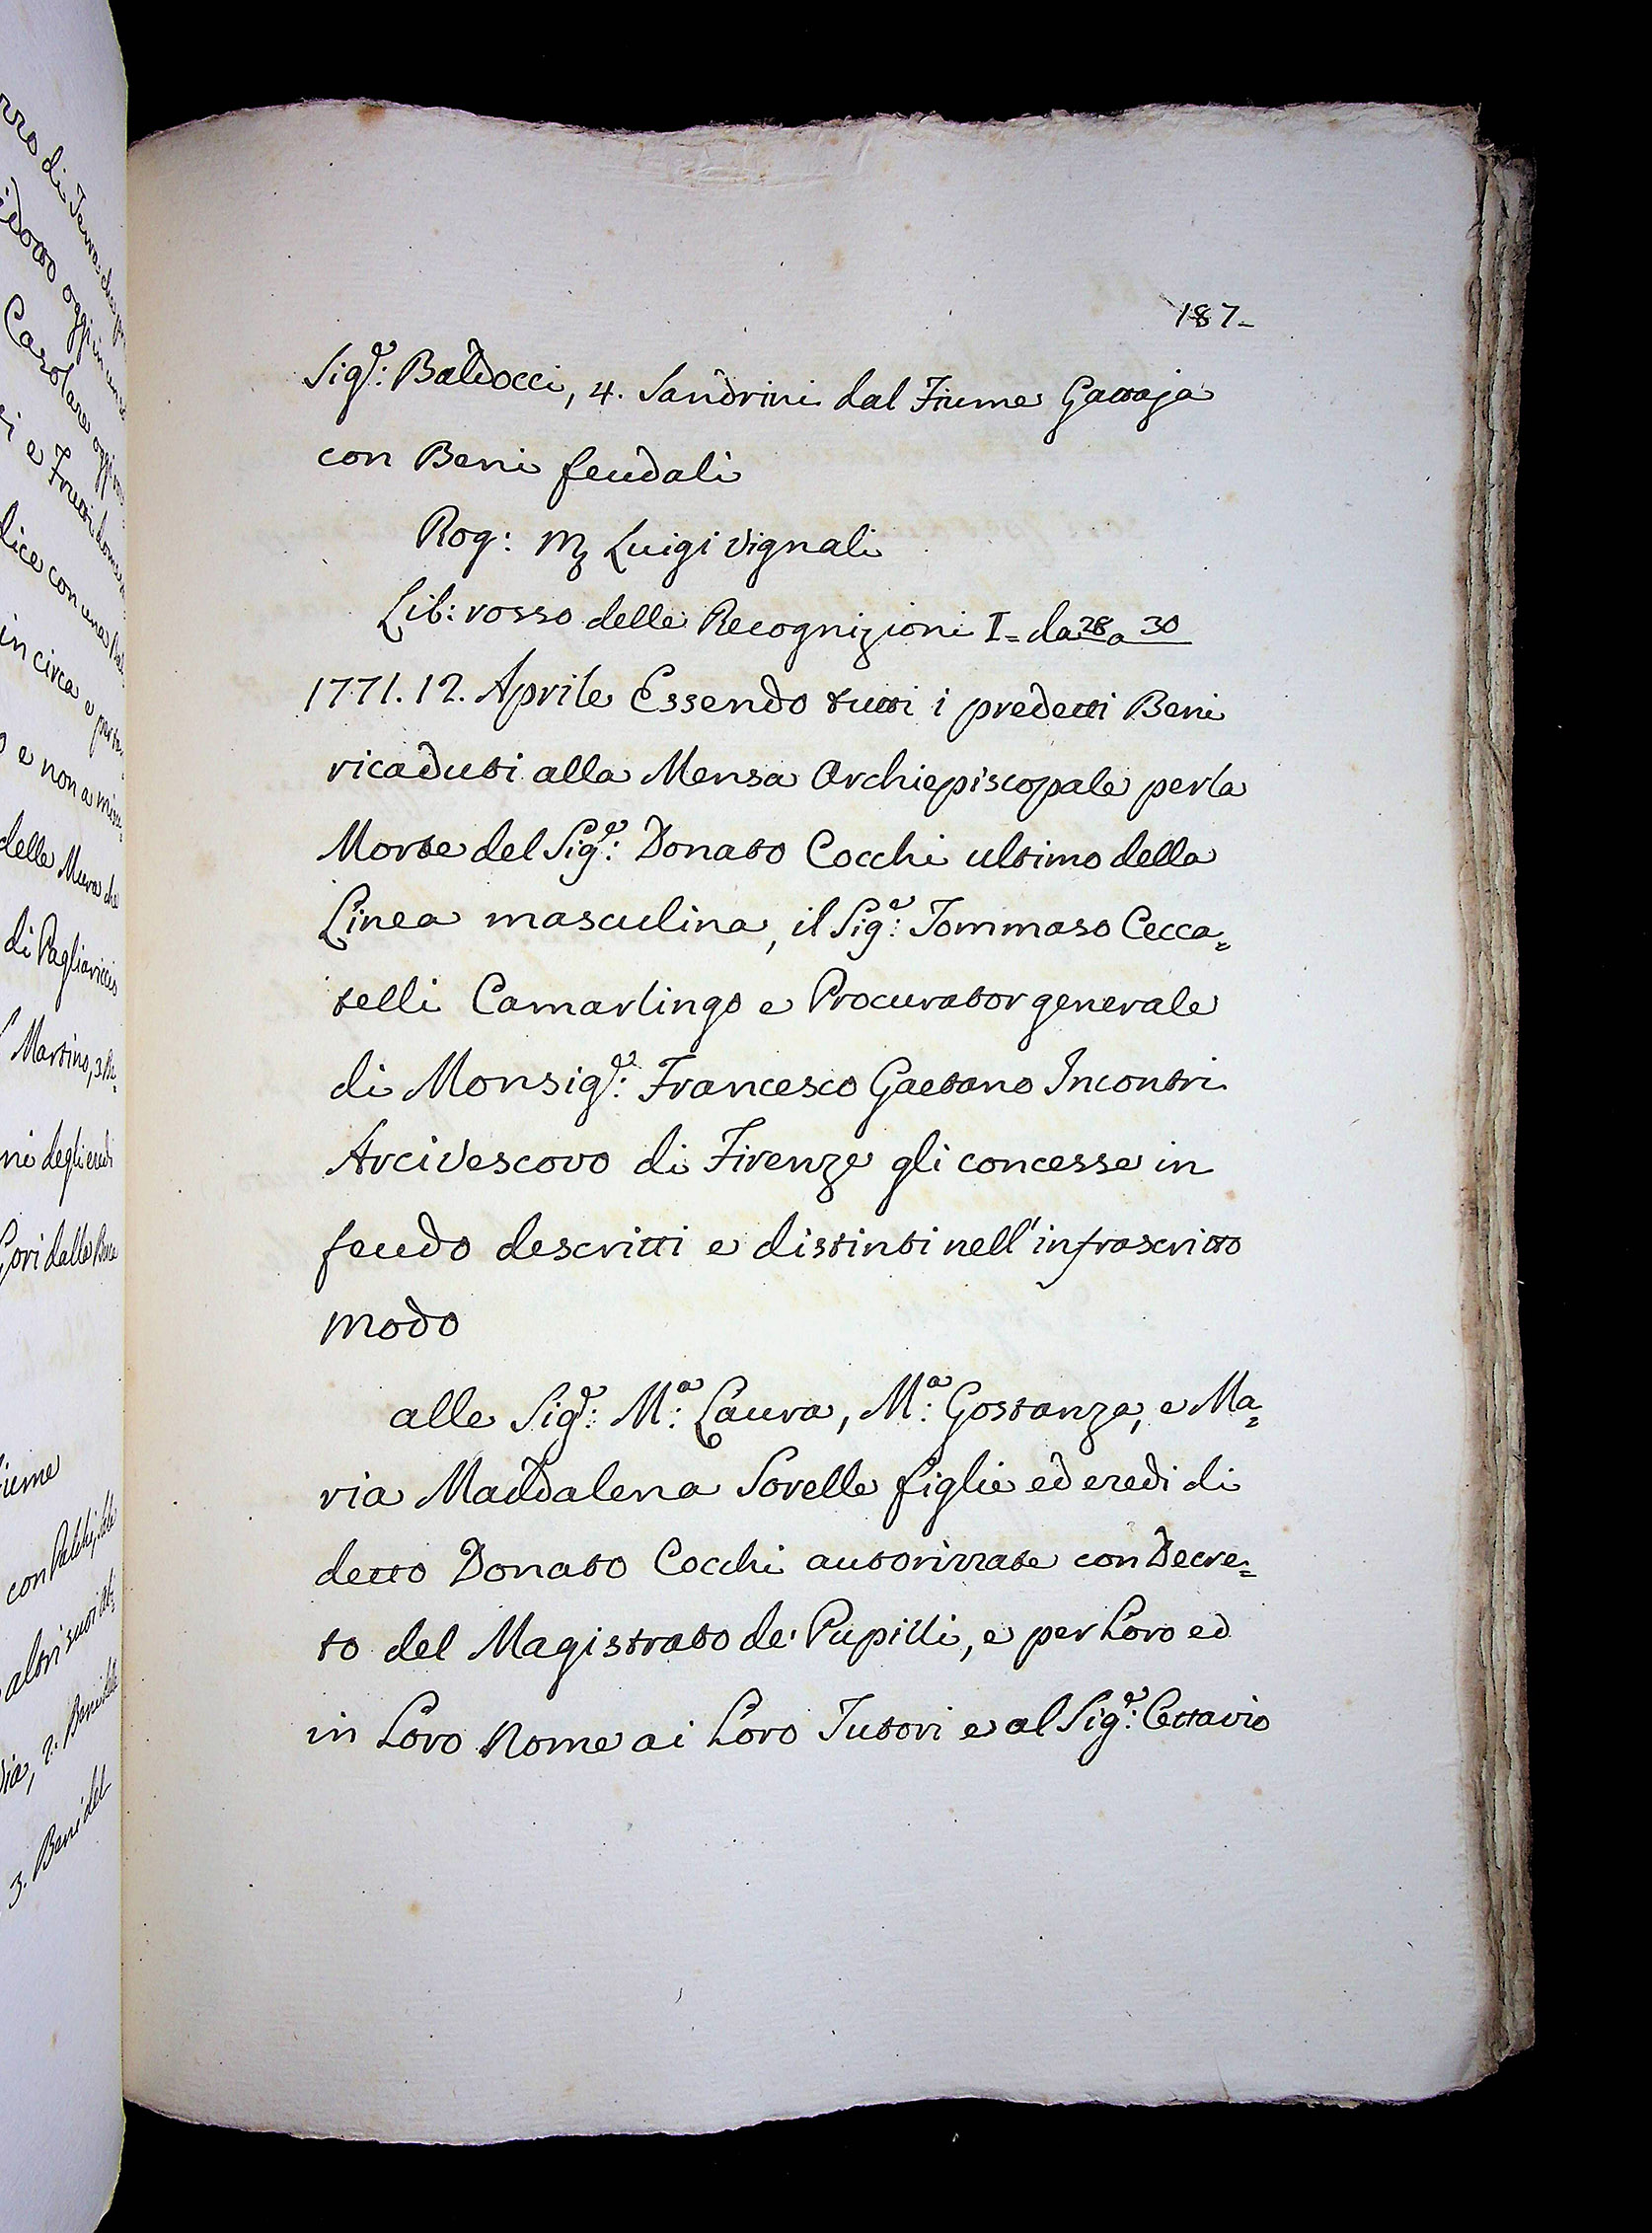 187-
Sig.e: Baldocci, 4. Sandrini dal Fiume Gattaja
con Beni feudali
Rog: M Luigi Vignali
Lib: rosso delle Recognizioni I= da 28 a 30
1771. 12. Aprile Essendo tutti i predetti Beni
ricaduti alla Mensa Archiepiscopale per la
Morte del Sig.e: Donato Cocchi ultimo della
Linea masculina, il Sig.e: Tommaso Cecca=
telli Camarlingo e Procurator generale
di Monsig.e: Francesco Gaetano Incontri
Arcivescovo di Firenze gli concesse in
feudo descritti e distinti nell'infrascritto
modo
alle Sig.e: M.a: Laura, M.a: Gostanza, e Ma=
ria Maddalena Sorelle figlie ed eredi di
detto Donato Cocchi autorizzate con Decre=
to del Magistrato de' Pupilli, e per Loro ed
in Loro Nome ai Loro Tutori e al Sig.e:
oggi in
Carolare
e Frutti
in circa e
e non a
delle Mura che
di Pagliariccio
Martino, 3.
degli eredi
Gori dalle
con
altri suoi
Via, 2. Beni
3. Beni del